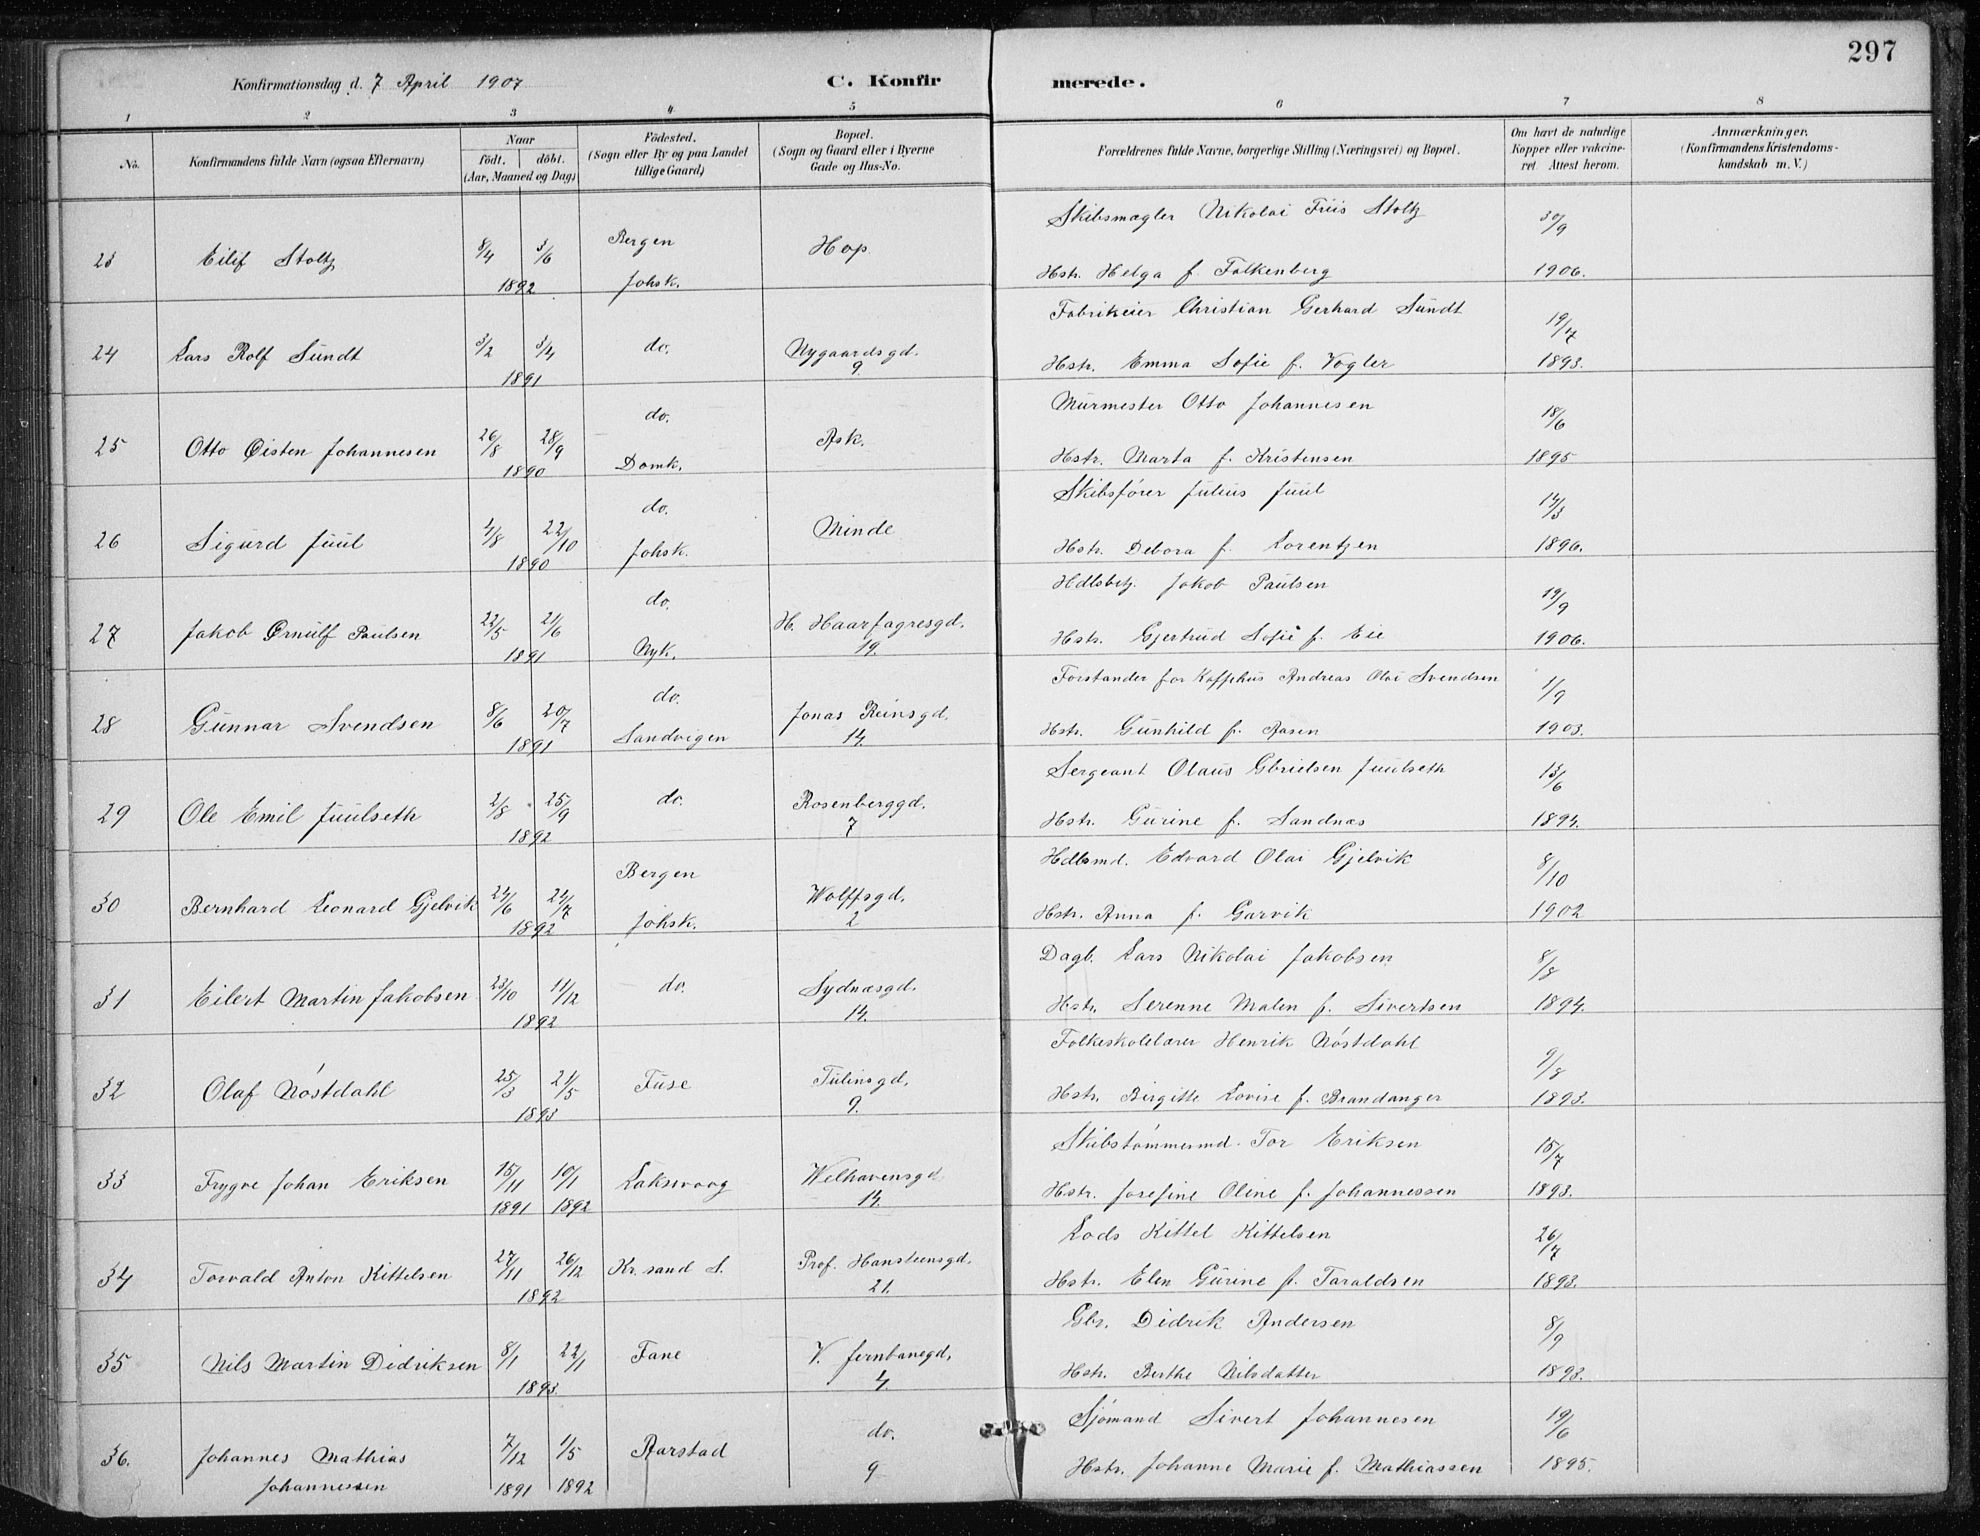 297
Konfirmationsdag d. 7 April 1907
C. Konfirmerede.
1 2 3 4 5 6 7 8
No.
Konfirmandens fulde Navn (ogsaa Efternavn)
Naar
födt. döbt.
(Aar, Maaned og Dag)
Födested.
(Sogn eller By og paa Landet
tillige Gaard)
Bopæl.
(Sogn og Gaard eller i Byerne
Gade og Hus-No.
Forældrenes fulde Navne, borgerlige Stilling (Næringsvei) og Bopæl.
Om havt de naturlige
Kopper eller vakcine-
ret. Attest herom.
Anmærkninger.
(Konfirmandens Kristendoms-
kundskab m. V.)
23 Eilif Stoltz 8/4 3/6 1892 Bergen Johsk. Hop.
Skibsmægler Nikolai Friis Stoltz 30/9
Hstr. Helga f. Falkenberg 1906.
24 Lars Rolf Sundt 3/2 3/4 1891 do. Nygaardsgd. 9.
Fabrikeier Christian Gerhard Sundt 19/7
Hstr. Emma Sofie f. Vogler 1893.
25 Otto Øisten Johannesen 26/8 28/9 1890 do. Domk. Ask.
Murmester Otto Johannesen 18/6
Hstr. Marta f. Kristensen 1895
26 Sigurd Juul 4/8 22/10 1890 do. Johsk. Minde
Skibsfører Julius Juul 14/3
Hstr. Debora f. Lorentzen 1896.
27 Jakob Ørnulf Paulsen 22/5 21/6 1891 do. Nyk. H. Haarfagresgd. 19.
Hdlsbetj. Jakob Paulsen 19/9
Hstr. Gjertrud Sofie f. Eie 1906.
28 Gunnar Svendsen 8/6 20/7 1891 do. Sandvigen Jonas Reinsgd. 14.
Forstander for Kaffhus Andreas Olai Svendsen 1/9
Hstr. Gunhild f. Aasen 1903.
29 Ole Emil Juulseth 2/8 25/9 1892 do. Rosenberggd. 7
Sergeant Olaus Gbrielsen Juulseth 13/6
Hstr. Gurine f. Sandnæs 1894.
30 Bernhard Leonard Gjelvik 24/6 24/7 1892 Bergen Johsk. Wolffsgd. 2
Hdlsmd. Edvard Olai Gjelvik 8/10
Hstr. Anna f. Garvik 1902
31 Eilert Martin Jakobsen 23/10 11/12 1892 do. Sydnæsgd. 14.
Dagb. Lars Nikolai Jakobsen 8/8
Hstr. Serenne Malen f. Sivertsen 1894.
32 Olaf Nøstdahl 25/3 21/5 1893 Fuse Tulinsgd. 9.
Folkeskolelærer Henrik Nøstdahl 9/8
Hstr. Birgitte Lovise f. Brandanger 1893.
33 Trygve Johan Eriksen 15/11 1891 10/1 1892 Laksevaag Welhavensgd 14.
Skibstømmermd. Tor Eriksen 15/7
Hstr. Josefine Oline f. Johannessen 1893.
34 Torvald Anton Kittelsen 27/11 26/12 1892 Kr.sand S. Prof. Hansteensgd. 21.
Lods Kittel Kittelsen 26/7
Hstr. Elen Gurine f. Taraldsen 1893.
35 Nils Martin Didriksen 8/1 22/1 1893 Fane V. Jernbanegd. 4.
Gbr. Didrik Andersen 8/9
Hstr. Berthe Nilsdatter 1893.
36. Johannes Mathias Johannessen 7/12 1891 1/5 1892 Aarstad do. 9
Sjømand Sivert Johannesen 19/6
Hstr. Johanne Marie f. Mathiassen 1895.